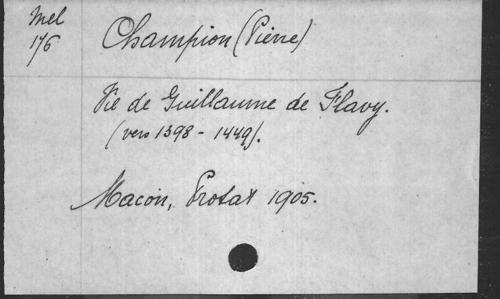 Mel
176
Champion (Pierre)
Vie de Guillaume de Flavy.
(vers 1398 - 1449).
Macon, Protat 1905.